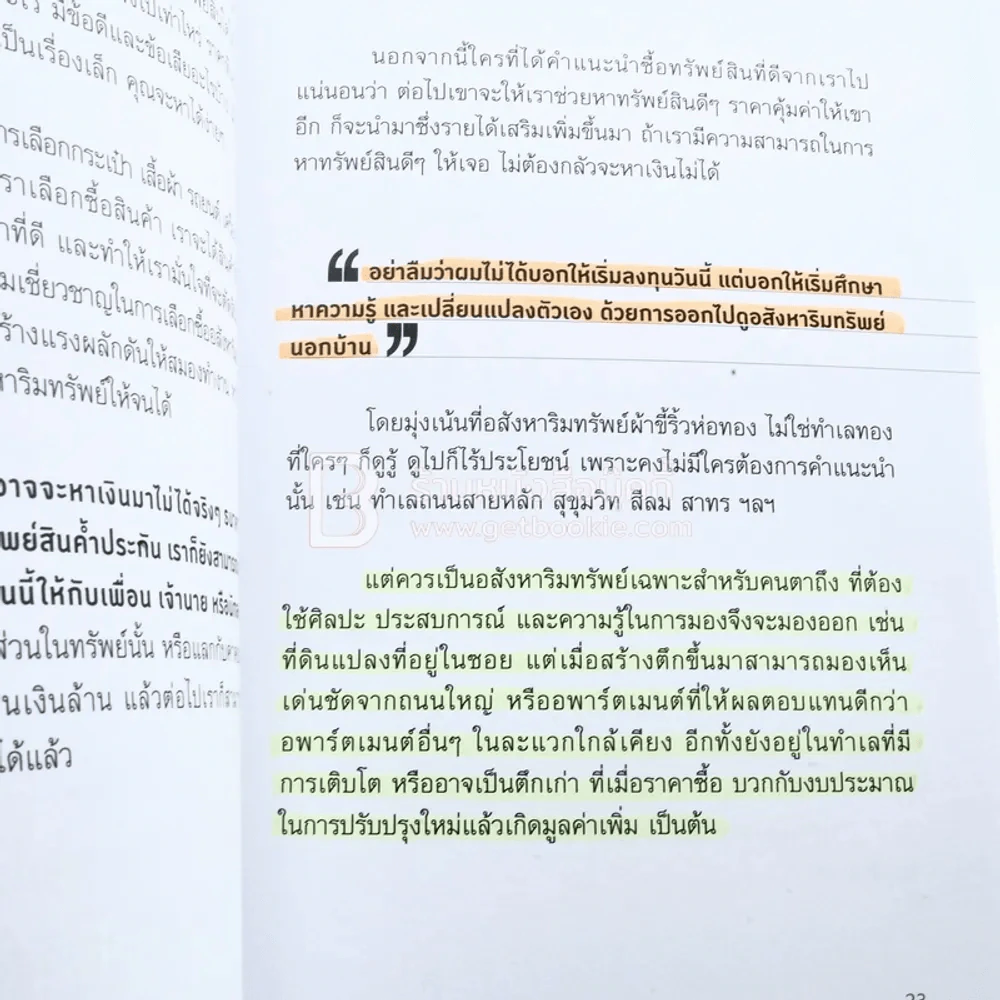 มีข้อดีและข้อเสียอะไรบ้าง
เป็นเรื่องเล็ก คุณจะหาได้ง่ายๆ
การเลือกกระเป๋า เสื้อผ้า รถยนต์
เราเลือกซื้อสินค้า เราจะได้สินค้า
ที่ดี และทำให้เรามั่นใจที่จะ
เชี่ยวชาญในการเลือกซื้อ
สร้างแรงผลักดันให้สมองทำงาน
หาริมทรัพย์ให้จนได้
อาจจะหาเงินมาไม่ได้จริงๆ
ทรัพย์สินค้ำประกัน เราก็ยังสามารถ
นี้ให้กับเพื่อน เจ้านาย หรือ
ส่วนในทรัพย์นั้น หรือแลกกับ
เป็นเงินล้าน แล้วต่อไปเราก็
ได้แล้ว
นอกจากนี้ใครที่ได้คำแนะนำซื้อทรัพย์สินที่ดีจากเราไป
แน่นอนว่า ต่อไปเขาจะให้เราช่วยหาทรัพย์สินดีๆ ราคาคุ้มค่าให้เขา
อีก ก็จะนำมาซึ่งรายได้เสริมเพิ่มขึ้นมา ถ้าเรามีความสามารถในการ
หาทรัพย์สินดีๆ ให้เจอ ไม่ต้องกลัวจะหาเงินไม่ได้
“ อย่าลืมว่าผมไม่ได้บอกให้เริ่มลงทุนวันนี้ แต่บอกให้เริ่มศึกษา
หาความรู้ และเปลี่ยนแปลงตัวเอง ด้วยการออกไปดูอสังหาริมทรัพย์
นอกบ้าน ”
โดยมุ่งเน้นที่อสังหาริมทรัพย์ผ้าขี้ริ้วห่อทอง ไม่ใช่ทำเลทอง
ที่ใครๆ ก็ดูรู้ ดูไปก็ไร้ประโยชน์ เพราะคงไม่มีใครต้องการคำแนะนำ
นั้น เช่น ทำเลถนนสายหลัก สุขุมวิท สีลม สาทร ฯลฯ
B ร้านหนังสือบุ๊คกี้
www.getbookie.com
แต่ควรเป็นอสังหาริมทรัพย์เฉพาะสำหรับคนตาถึง ที่ต้อง
ใช้ศิลปะ ประสบการณ์ และความรู้ในการมองจึงจะมองออก เช่น
ที่ดินแปลงที่อยู่ในซอย แต่เมื่อสร้างตึกขึ้นมาสามารถมองเห็น
เด่นชัดจากถนนใหญ่ หรืออพาร์ตเมนต์ที่ให้ผลตอบแทนดีกว่า
อพาร์ตเมนต์อื่นๆ ในละแวกใกล้เคียง อีกทั้งยังอยู่ในทำเลที่มี
การเติบโต หรืออาจเป็นตึกเก่า ที่เมื่อราคาซื้อ บวกกับงบประมาณ
ในการปรับปรุงใหม่แล้วเกิดมูลค่าเพิ่ม เป็นต้น
23